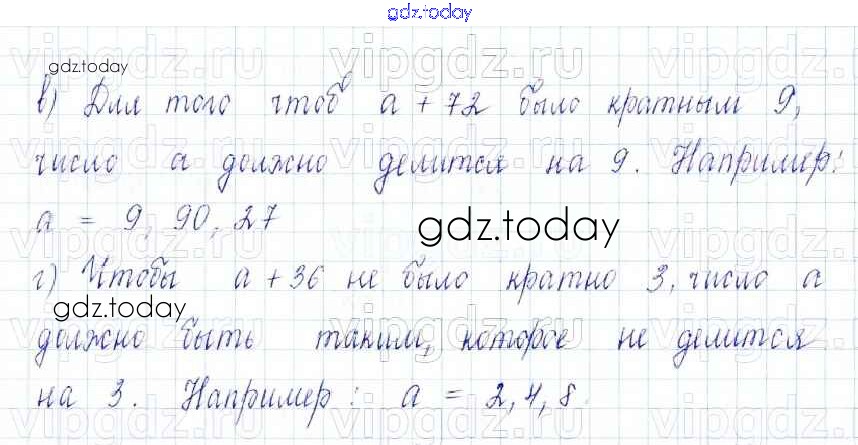 gdz.today
gdz.today
в) Для того чтоб a + 72 было кратным 9,
число a должно делится на 9. Например:
a = 9, 90, 27
gdz.today
г) Чтобы a + 36 не было кратно 3, число a
gdz.today
должно быть таким, которое не делится
на 3. Например: a = 2, 4, 8